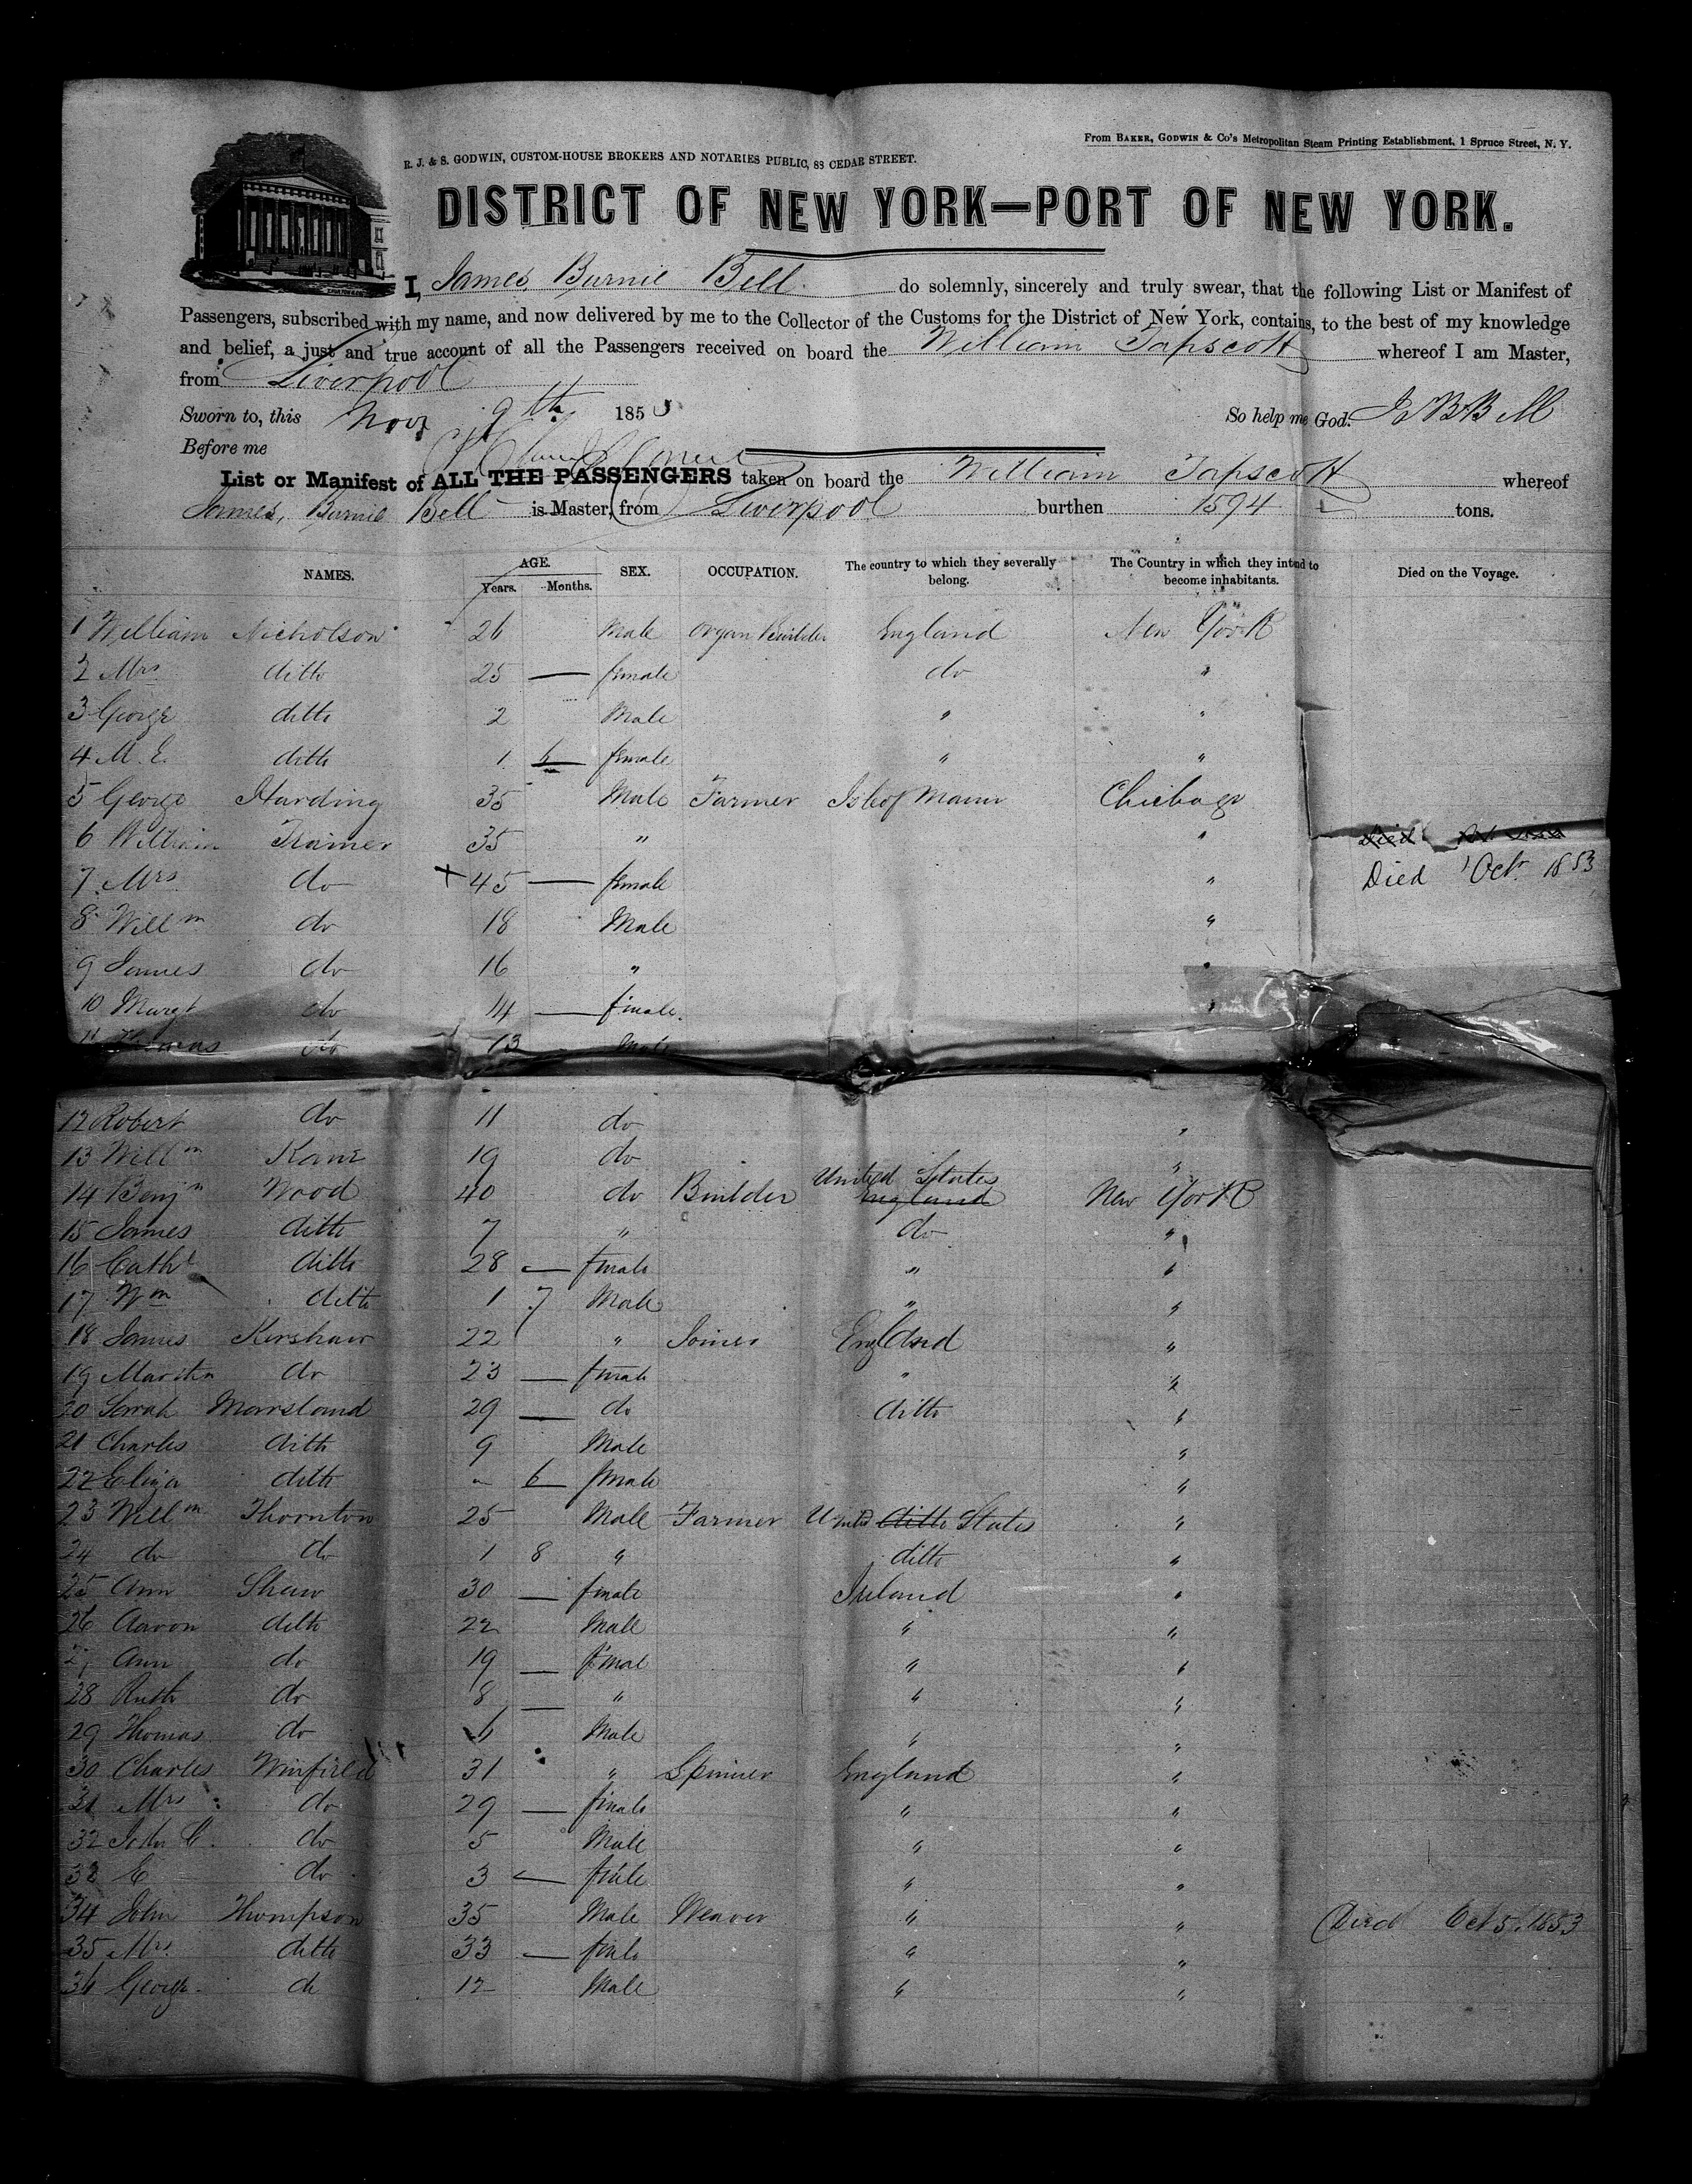 From BAKER, GODWIN & Co's Metropolitan Steam Printing Establishment, 1 Spruce Street, N. Y.
R. J. & S. GODWIN, CUSTOM-HOUSE BROKERS AND NOTARIES PUBLIC, 83 CEDAR STREET.
DISTRICT OF NEW YORK—PORT OF NEW YORK.
I, James Burnie Bell do solemnly, sincerely and truly swear, that the following List or Manifest of
Passengers, subscribed with my name, and now delivered by me to the Collector of the Customs for the District of New York, contains, to the best of my knowledge
and belief, a just and true account of all the Passengers received on board the William Tapscott whereof I am Master,
from Liverpool
Sworn to, this Novr 9th 185 So help me God. Js B Bell
Before me
List or Manifest of ALL THE PASSENGERS taken on board the William Tapscott whereof
James Burnie Bell is Master, from Liverpool burthen 1594 tons.
NAMES. AGE. Years. Months. SEX. OCCUPATION. The country to which they severally belong. The Country in which they intend to become inhabitants. Died on the Voyage.
1 William Nicholson 26 Male Organ Builder England New York
2 Mrs ditto 25 — female do "
3 George ditto 2 Male " "
4 M. E. ditto 1 6 female " "
5 George Harding 35 Male Farmer Isle of Mann Chichago
6 William Trainer 35 " " Died
7 Mrs do + 45 — female " Died 1 Oct 1853
8 Willm do 18 Male "
9 James do 16 " "
10 Margt do 14 — female "
11 Thomas do 13 Male
12 Robert do 11 do "
13 Willm Kane 19 do "
14 Benjn Wood 40 do Builder United States England New York
15 James ditto 7 " do "
16 Cath ditto 28 — female " "
17 Wm ditto 1 7 Male " "
18 James Kershaw 22 " Joiner England "
19 Martha do 23 — female " "
20 Sarah Marsland 29 — do ditto "
21 Charles ditto 9 Male "
22 Eliza ditto - 6 female "
23 Willm Thornton 25 Male Farmer United ditto States "
24 do do 1 8 " ditto "
25 Ann Shaw 30 — female Ireland "
26 Aaron ditto 22 Male " "
27 Ann do 19 — femal " "
28 Ruth do 8 — " " "
29 Thomas do 6 Male " "
30 Charles Winfield 31 " Spinner England "
31 Mrs do 29 — female " "
32 John C. do 5 Male " "
33 E do 3 — female " "
34 John Thompson 35 Male Weaver " " Died Oct 5, 1853
35 Mrs ditto 33 — female " "
36 George do 12 Male " "